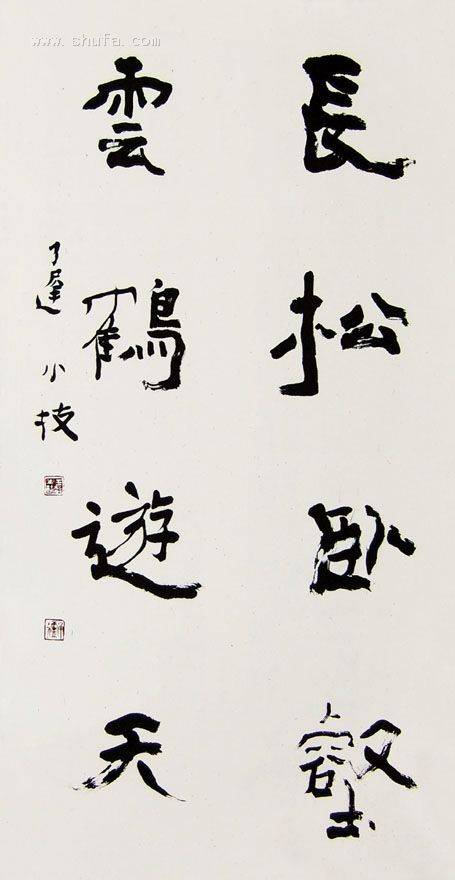 www.shufa.com
長松卧壑
雲鶴遊天
小技